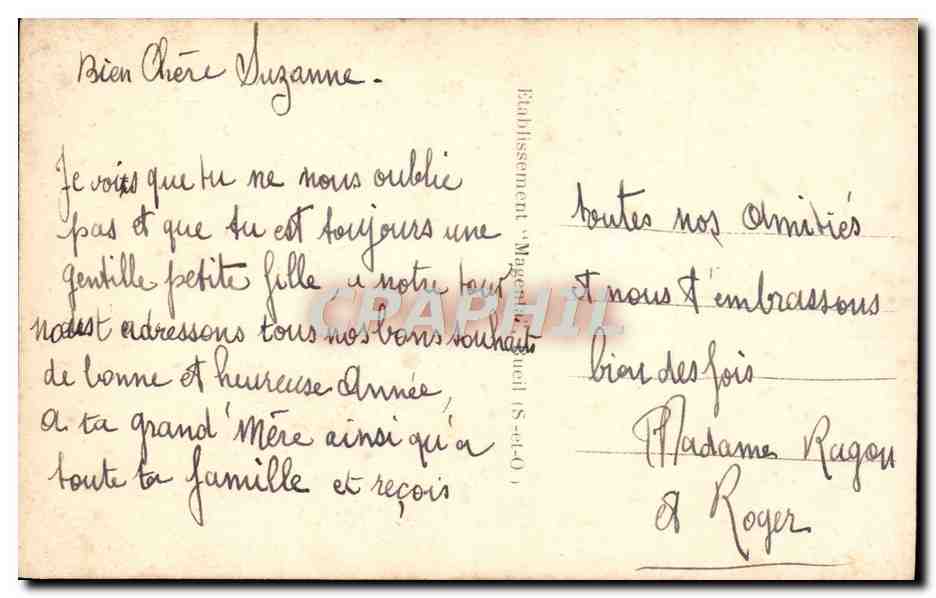 Bien Chère Suzanne -
Je vois que tu ne nous oublie
pas et que tu est toujours une
gentille petite fille a notre tour
nous t adressons tous nos bons souhaits
de bonne et heureuse Année,
A ta grand'Mère ainsi qu'a
toute ta famille et reçois
toutes nos amitiés
et nous t'embrassons
bien des fois
Madame Ragou
et Roger
Etablissement "Magenta" ueil (S-et-O)
CPAPHIL